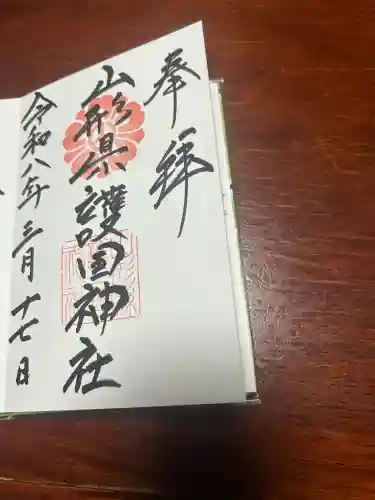 奉拝
山形県護国神社
令和八年三月十七日